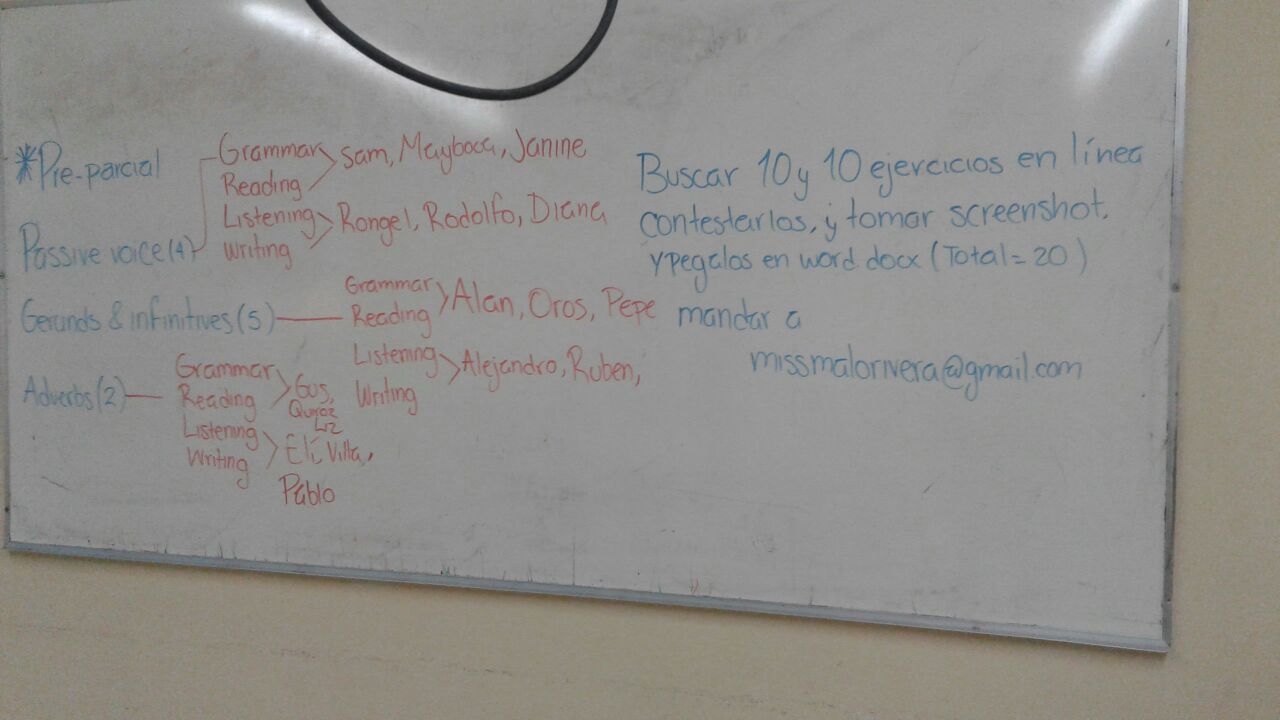 *Pre-parcial
Grammar
Reading
Sam, Mayboca, Janine
Passive voice (4)
Listening
Writing
Rongel, Rodolfo, Diana
Gerunds & infinitives (5)
Grammar
Reading
Alan, Oros, Pepe
Listening
Writing
Alejandro, Ruben,
Adverbs (2)
Grammar
Reading
Gus,
Liz
Listening
Writing
Elí, Villa,
Pablo
Buscar 10 y 10 ejercicios en línea
contestarlos, y tomar screenshot.
y pegalos en word docx (Total = 20)
mandar a
missmalorivera@gmail.com